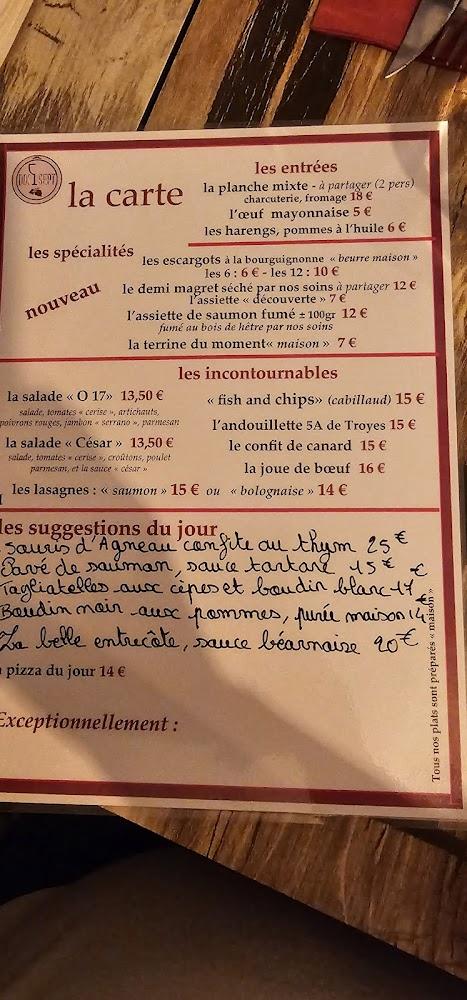 la carte
les entrées
la planche mixte - à partager (2 pers)
charcuterie, fromage 18 €
l'œuf mayonnaise 5 €
les harengs, pommes à l'huile 6 €
les spécialités
nouveau
les escargots à la bourguignonne « beurre maison »
les 6 : 6 € - les 12 : 10 €
le demi magret séché par nos soins à partager 12 €
l'assiette « découverte » 7 €
l'assiette de saumon fumé ± 100gr 12 €
fumé au bois de hêtre par nos soins
la terrine du moment« maison » 7 €
les incontournables
la salade « O 17» 13,50 €
salade, tomates « cerise », artichauts,
poivrons rouges, jambon « serrano », parmesan
la salade « César » 13,50 €
salade, tomates « cerise », croûtons, poulet
parmesan, et la sauce « césar »
« fish and chips» (cabillaud) 15 €
l'andouillette 5A de Troyes 15 €
le confit de canard 15 €
la joue de bœuf 16 €
les lasagnes : « saumon » 15 € ou « bolognaise » 14 €
les suggestions du jour
Souris d'Agneau confite au thym 25 €
Pavé de saumon, sauce tartare 15 €
Tagliatelles aux cèpes et boudin blanc 17 €
Boudin noir aux pommes, purée maison 14 €
La belle entrecôte, sauce béarnaise 20 €
pizza du jour 14 €
Exceptionnellement :
Tous nos plats sont préparés « maison »